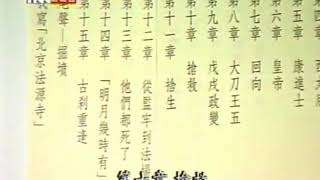 四章　西太后
五章　康進士
六章　皇帝
七章　回向
第八章　大刀王五
第九章　戊戌政變
第十章　搶救
第十一章　捨生
第十二章　從監牢到法場
第十三章　他們都死了
第十四章　「明月幾時有」
第十五章　古剎重逢
尾聲—掘墳
我寫「北京法源寺」
第十章 搶救